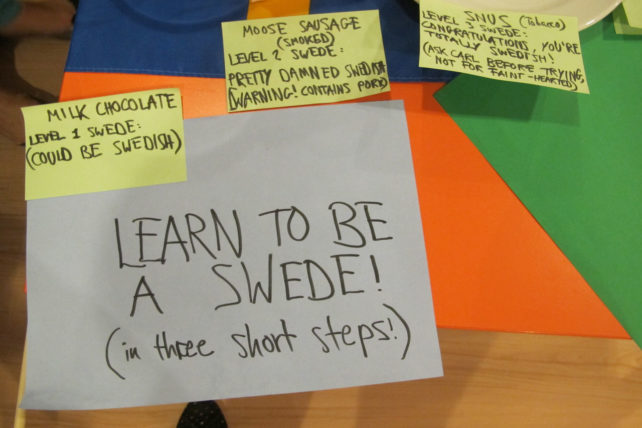 MILK CHOCOLATE
LEVEL 1 SWEDE:
(COULD BE SWEDISH)
MOOSE SAUSAGE
(SMOKED)
LEVEL 2 SWEDE:
PRETTY DAMNED SWEDISH
(WARNING! CONTAINS PORK)
SNUS (Tobacco)
LEVEL 3 SWEDE:
CONGRATULATIONS, YOU'RE
TOTALLY SWEDISH!
(ASK CARL BEFORE TRYING,
NOT FOR FAINT-HEARTED)
LEARN TO BE
A SWEDE!
(in three short steps!)